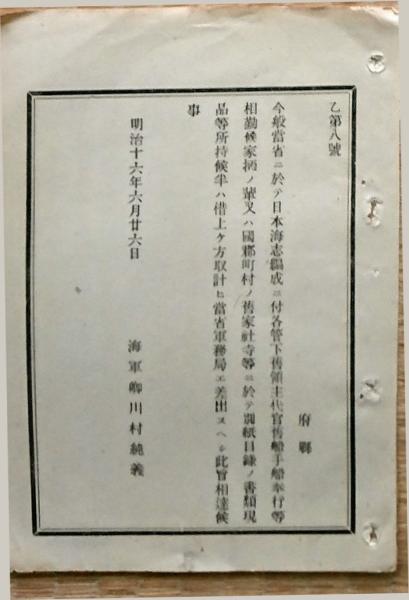 乙第八號
府縣
今般當省ニ於テ日本海志編成ニ付各管下舊領主代官舊船手船奉行等
相勤候家柄ノ輩又ハ國郡町村ノ舊家社寺等ニ於テ別紙目錄ノ書類現
品等所持候半ハ借上ケ方取計ヒ當省軍務局エ差出スヘシ此旨相達候
事
明治十六年六月廿六日
海軍卿川村純義